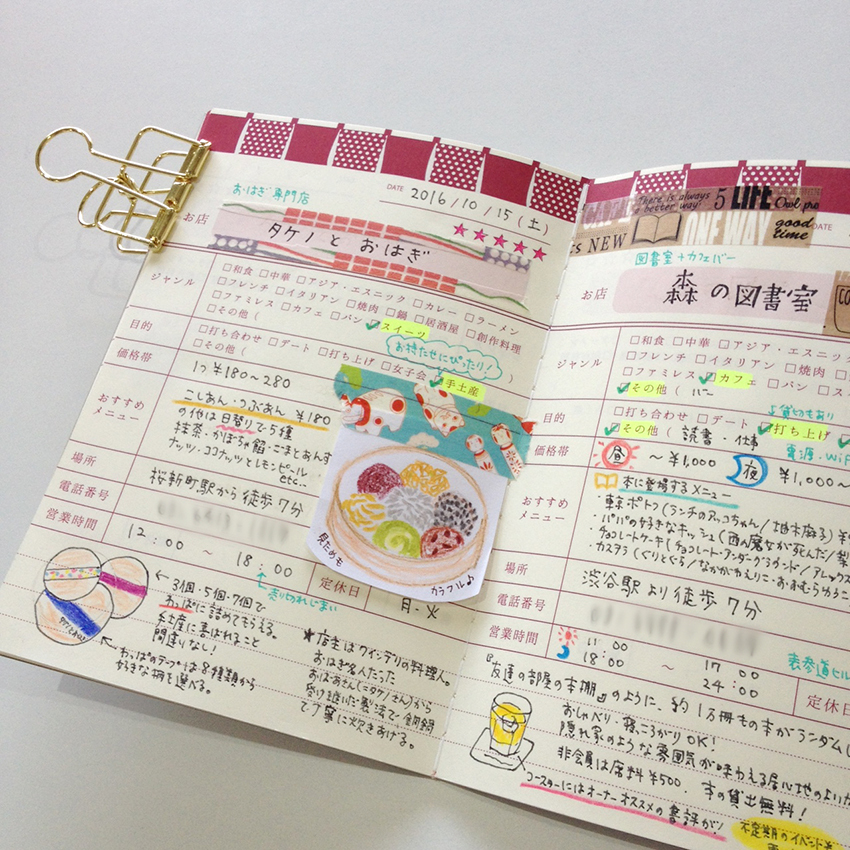 おはぎ専門店
DATE 2016/10/15(土)
お店
タケノとおはぎ
★★★★★
ジャンル
□和食 □中華 □アジア・エスニック □カレー □ラーメン
□フレンチ □イタリアン □焼肉 □鍋 □居酒屋 □創作料理
□ファミレス □カフェ □パン ✓スイーツ
□その他 (
お持たせにぴったり!
目的
□打ち合わせ □デート □打ち上げ □女子会 ✓手土産
□その他 ( )
価格帯
1つ ¥180~280
おすすめ
メニュー
こしあん・つぶあん ¥180
の他は日替りで5種
抹茶・かぼちゃ餡・ごまとあんず
ナッツ・ココナッツとレモンピール
etc...
場所
桜新町駅から徒歩7分
電話番号
営業時間
12:00 ~ 18:00
売り切れじまい
定休日
月・火
見ためも
カラフル♪
3個・5個・7個で
わっぱに詰めてもらえる。
お土産に喜ばれること
間違いなし!
わっぱのテープは8種類から
好きな柄を選べる。
★店主はケインテリの料理人。
おはぎ名人だった
おばあさん(=タケノさん)から
受け継いだ製法で、銅鍋
で丁寧に炊きあげる。
There is always
a better way!
5 LIFE
Owl pro
NEW
ONE WAY
good
time
DATE
図書室+カフェバー
お店
森の図書室
ジャンル
□和食 □中華 □アジア・エスニック
□フレンチ □イタリアン □焼肉
□ファミレス ✓カフェ □パン
✓その他 ( バー
貸切もあり
目的
□打ち合わせ □デート ✓打ち上げ
✓その他 ( 読書・仕事
電源・WiFi
価格帯
昼 ~¥1,000 夜 ¥1,000~
おすすめ
メニュー
本に登場するメニュー
・東京ポトフ(ランチのアッコちゃん/柚木麻子)
・パパの好きなキッシュ(西の魔女が死んだ/梨
・チョコレートケーキ(チョコレート・アンダーグラウンド/アレックス
・カステラ(ぐりとぐら/なかがわりえこ・おおむらゆりこ
場所
渋谷駅より徒歩7分
電話番号
営業時間
11:00 ~ 17:00
18:00 ~ 24:00
表参道ビル
定休日
『友達の部屋の本棚』のように、約1万冊もの本がランダムに
おしゃべり、寝ころがりOK!
隠れ家のような雰囲気が味わえる居心地のよい
非会員は席料¥500、本の貸出無料!
コースターにはオーナーオススメの書評が!
不定期のイベント